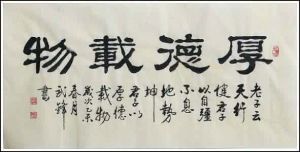 厚德載物
老子云
天行
健君子
以自彊
不息
地勢
坤
君子以
厚德
載物
歲次乙未
春月
書